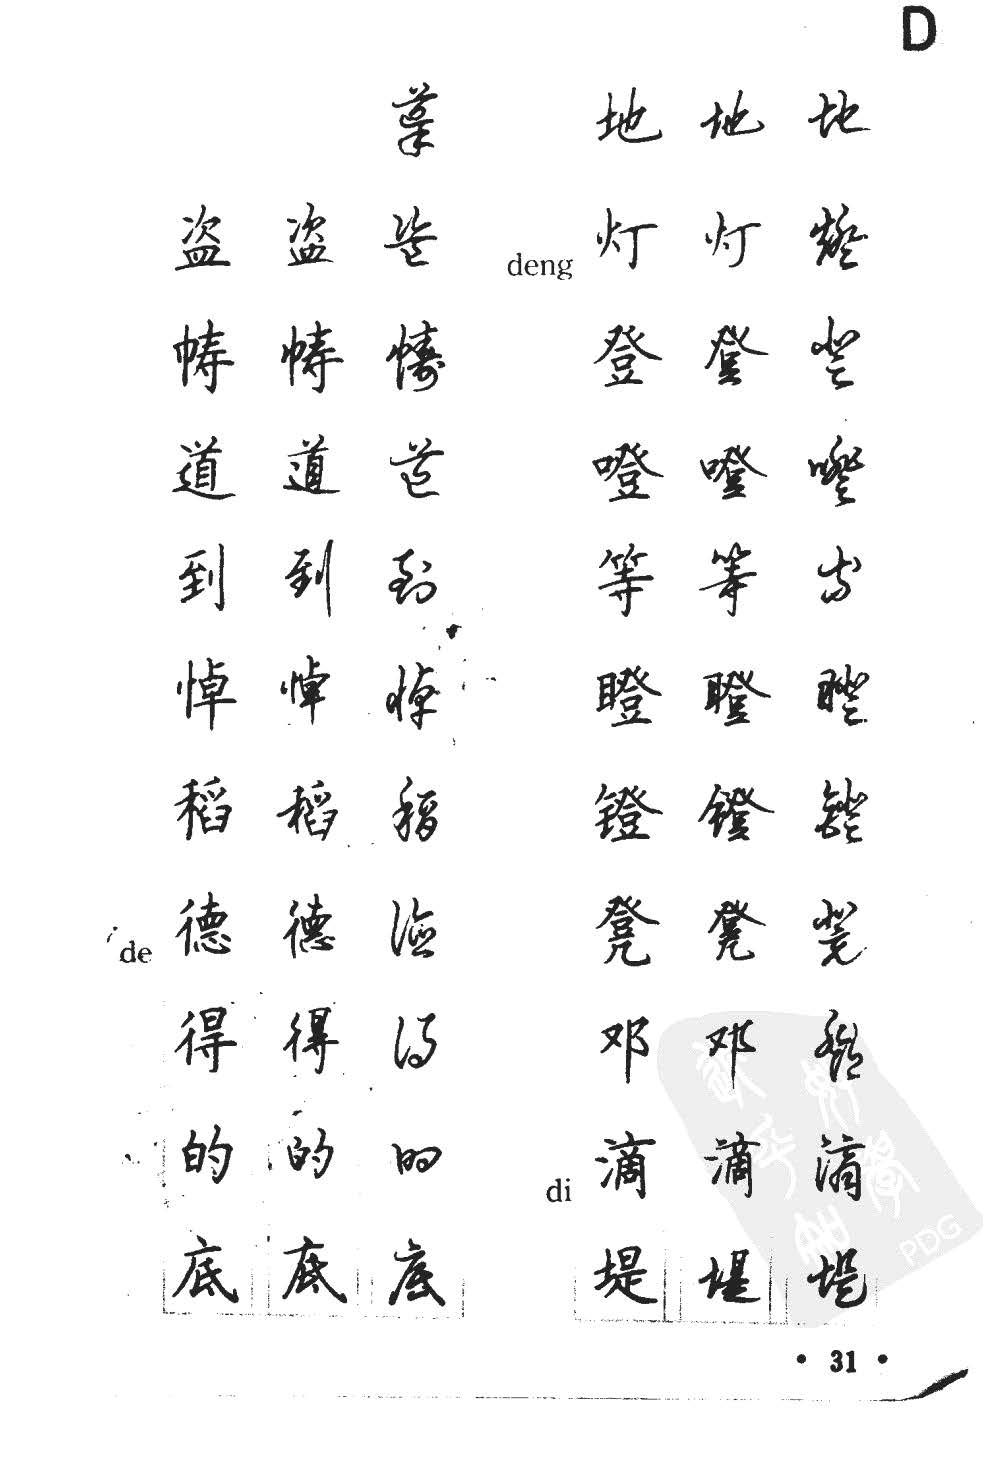 D
地 地 地
盗 盗 盗 deng 灯 灯 燈
帱 帱 幬 登 登 登
道 道 道 噔 噔 噔
到 到 到 等 等 等
悼 悼 悼 瞪 瞪 瞪
稻 稻 稻 镫 镫 镫
de 德 德 德 凳 凳 凳
得 得 得 邓 邓 鄧
的 的 的 di 滴 滴 滴
底 底 底 堤 堤 堤
PDG
• 31 •